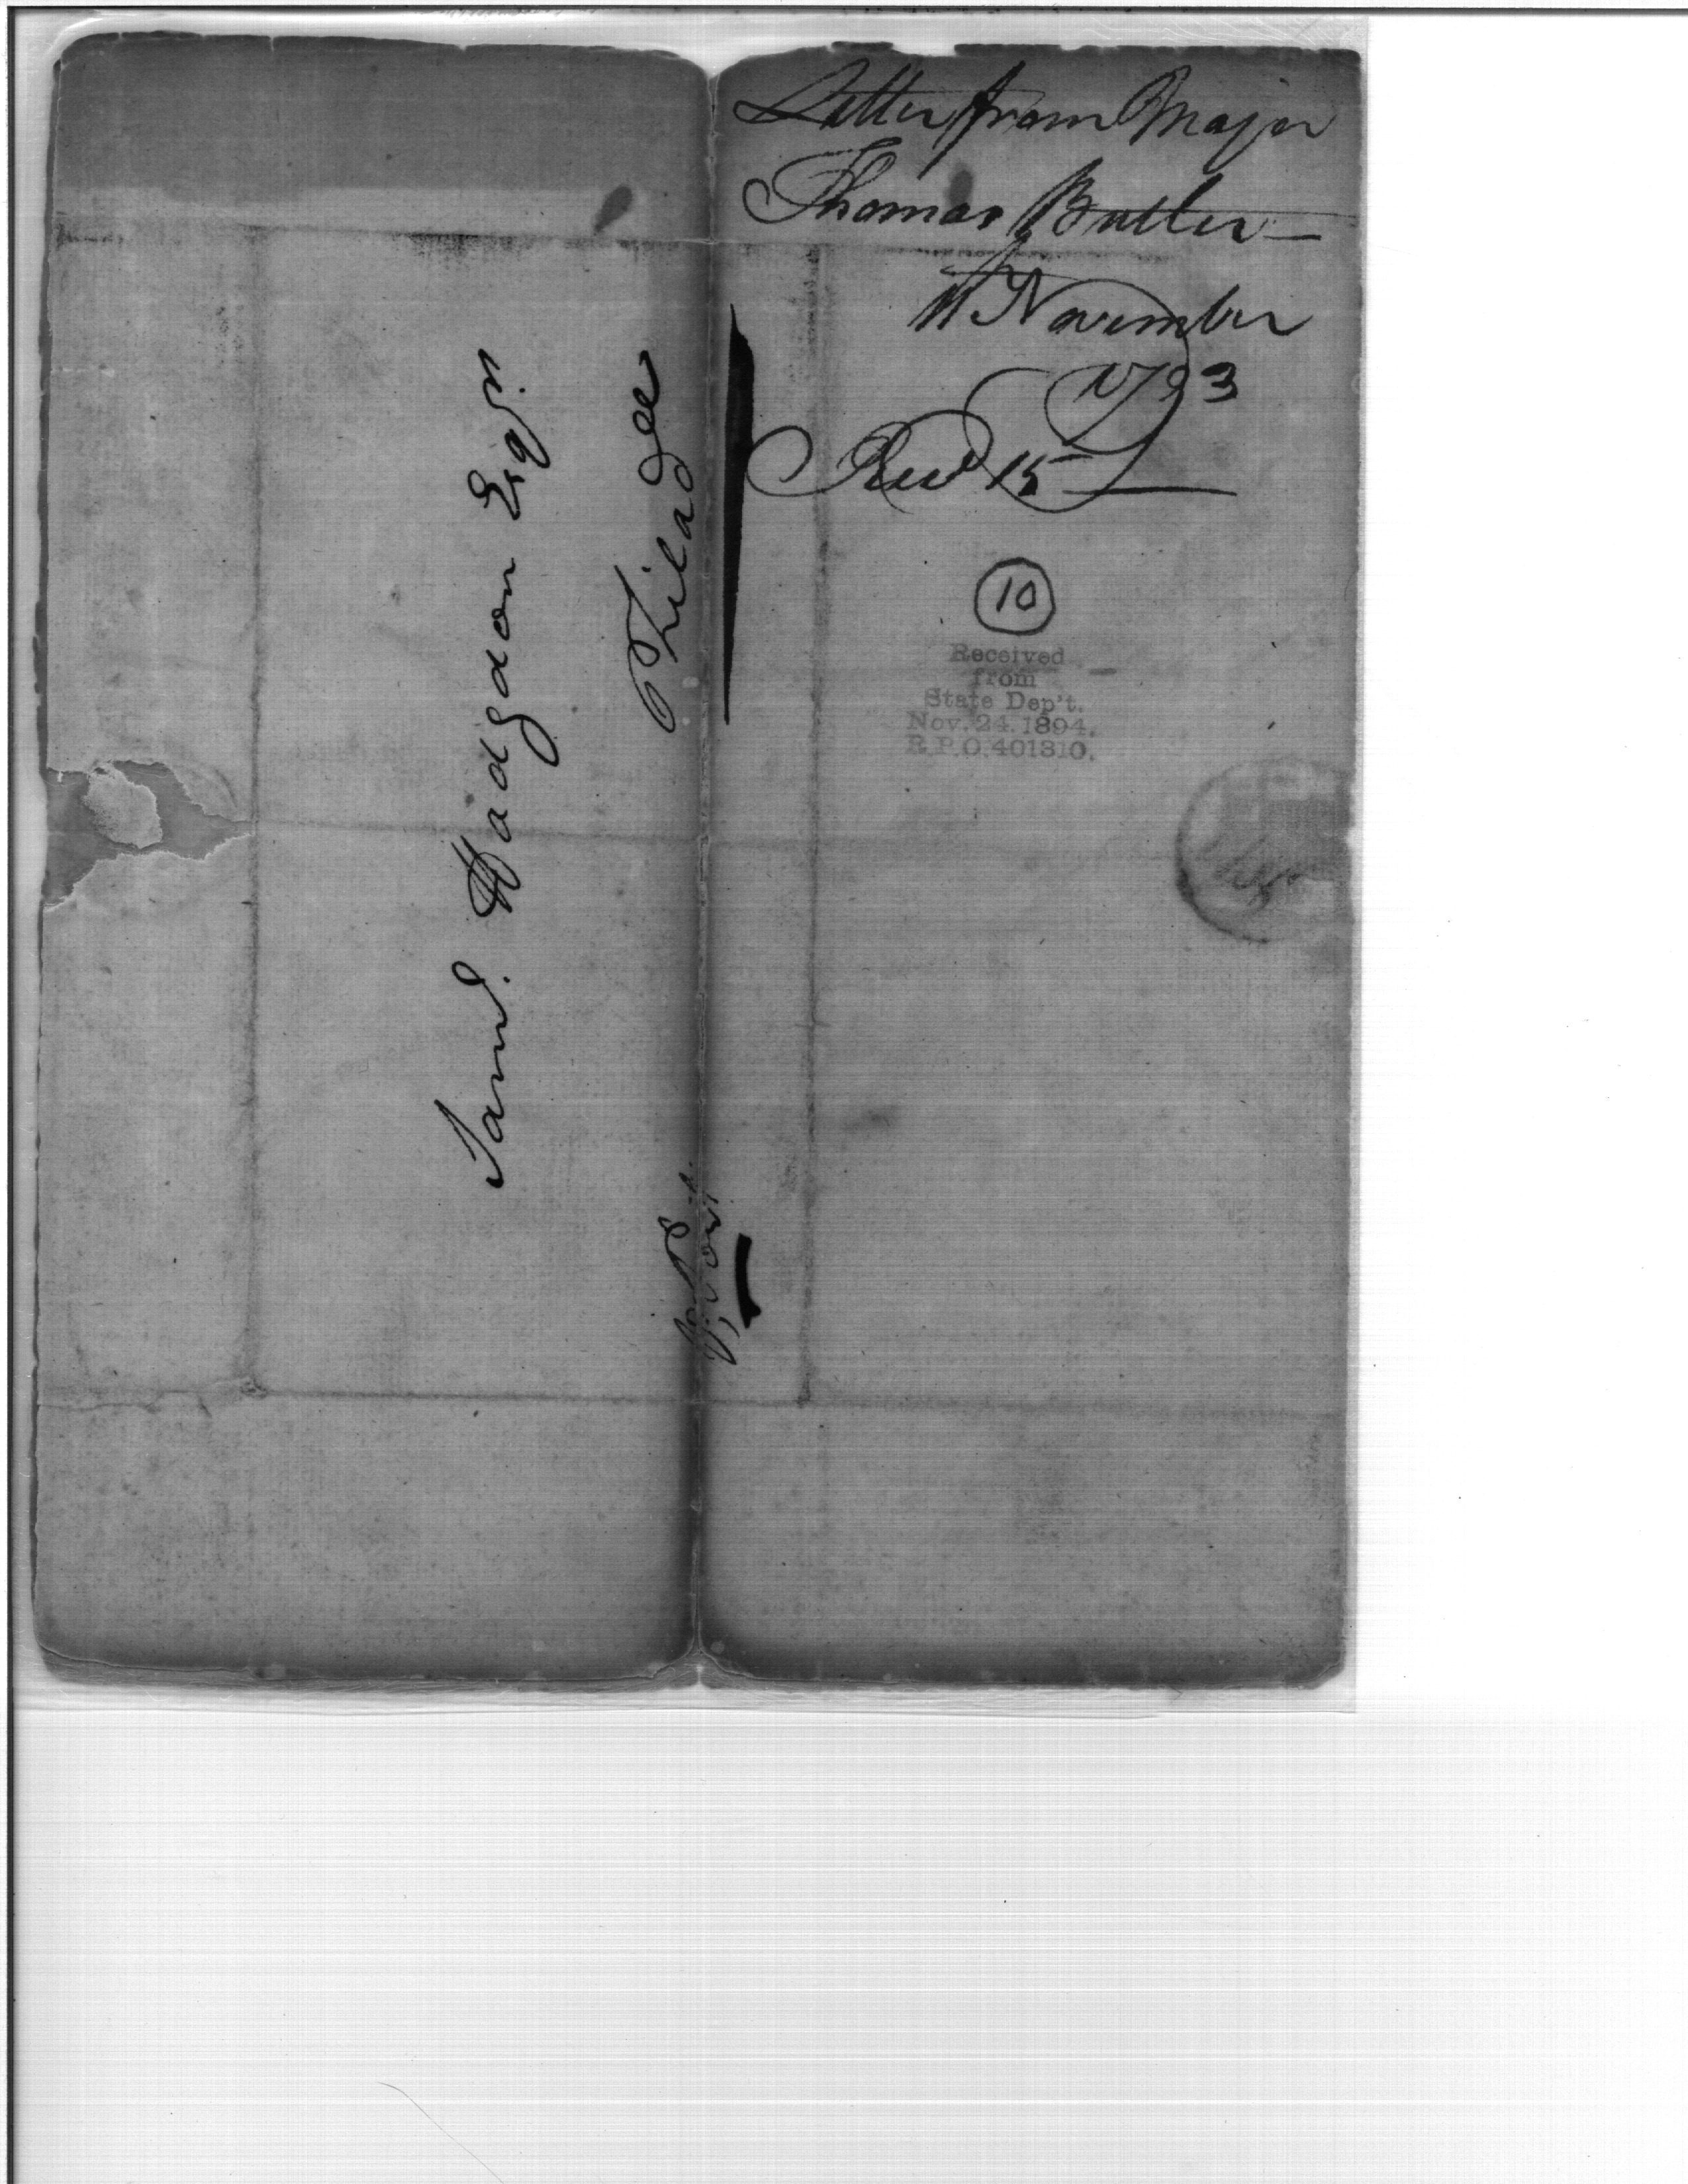 Letter from Major
Thomas Butler—
11 November
1793
Recd 15—
10
Received
from
State Dep't.
Nov. 24. 1894.
R.P.O. 401310.
Saml. Hodgdon Esqr.
Philada